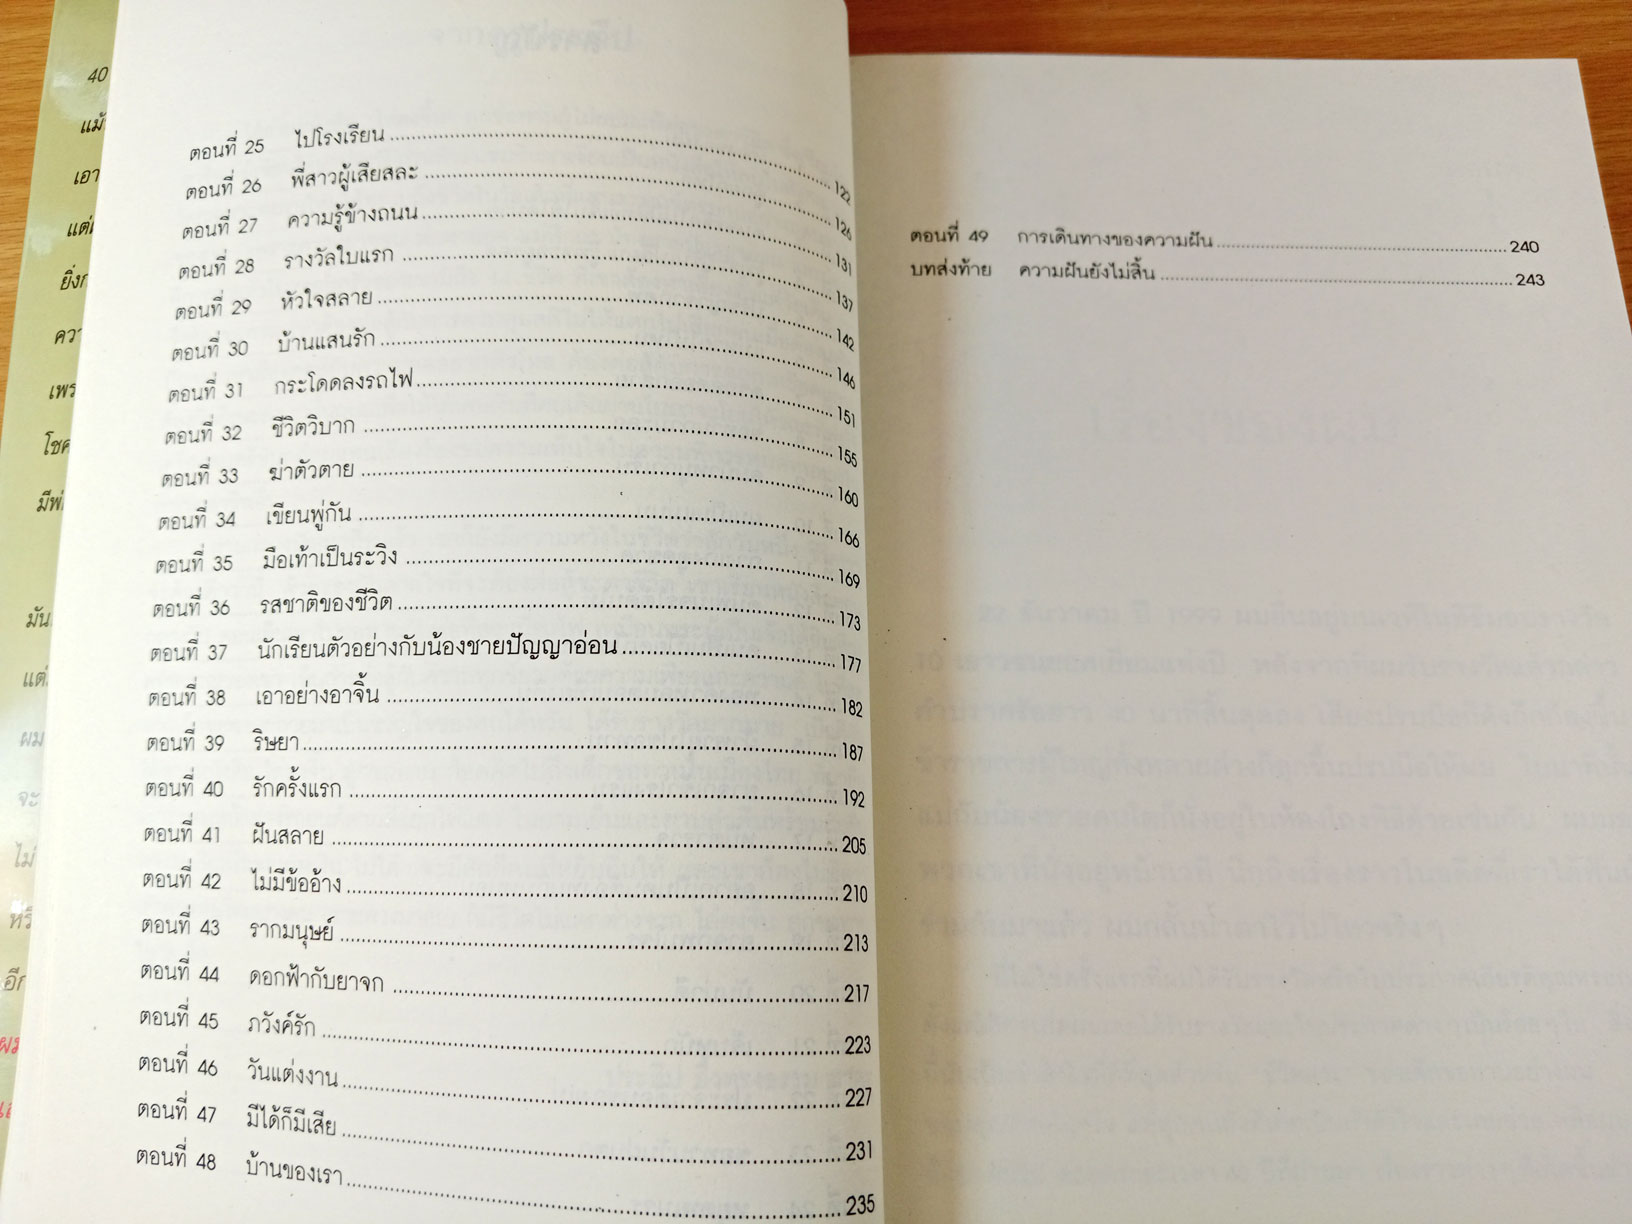 ตอนที่ 25 ไปโรงเรียน 122
ตอนที่ 26 พี่สาวผู้เสียสละ 126
ตอนที่ 27 ความรู้ข้างถนน 131
ตอนที่ 28 รางวัลใบแรก 137
ตอนที่ 29 หัวใจสลาย 142
ตอนที่ 30 บ้านแสนรัก 146
ตอนที่ 31 กระโดดลงรถไฟ 151
ตอนที่ 32 ชีวิตวิบาก 155
ตอนที่ 33 ฆ่าตัวตาย 160
ตอนที่ 34 เขียนพู่กัน 166
ตอนที่ 35 มือเท้าเป็นระวิง 169
ตอนที่ 36 รสชาติของชีวิต 173
ตอนที่ 37 นักเรียนตัวอย่างกับน้องชายปัญญาอ่อน 177
ตอนที่ 38 เอาอย่างอาจิ้น 182
ตอนที่ 39 ริษยา 187
ตอนที่ 40 รักครั้งแรก 192
ตอนที่ 41 ฝันสลาย 205
ตอนที่ 42 ไม่มีข้ออ้าง 210
ตอนที่ 43 รากมนุษย์ 213
ตอนที่ 44 ดอกฟ้ากับยาจก 217
ตอนที่ 45 ภวังค์รัก 223
ตอนที่ 46 วันแต่งงาน 227
ตอนที่ 47 มีได้ก็มีเสีย 231
ตอนที่ 48 บ้านของเรา 235
ตอนที่ 49 การเดินทางของความฝัน 240
บทส่งท้าย ความฝันยังไม่สิ้น 243